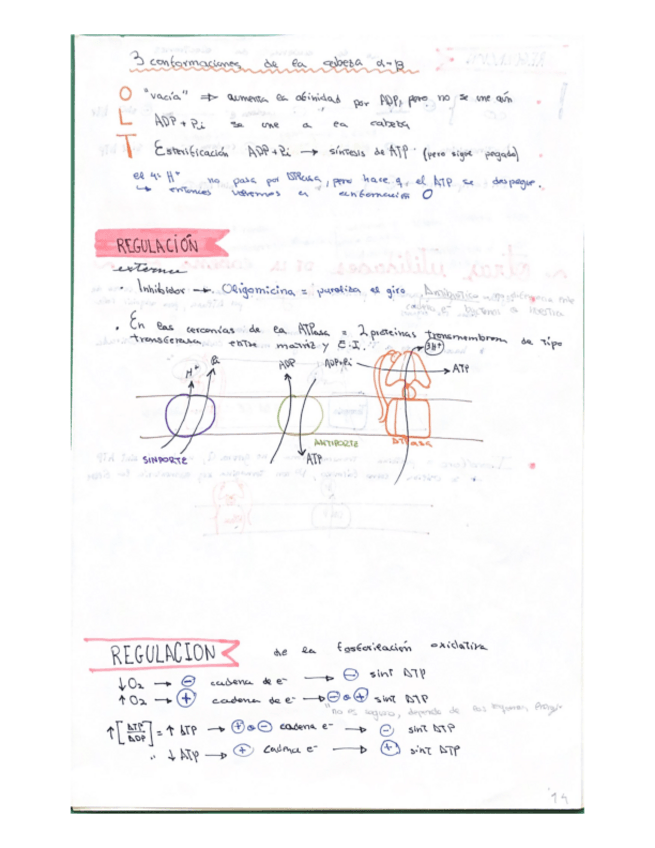 3 conformaciones de la cabeza α-β
O "vacía" → aumenta la afinidad por ADP, pero no se une aún
L ADP + Pi se une a la cabeza
T Esterificación ADP + Pi → síntesis de ATP (pero sigue pegado)
el 4º H⁺ no pasa por ATPasa, pero hace q. el ATP se despegue.
↳ entonces volvemos a conformación O
REGULACIÓN
externa
· Inhibidor → Oligomicina = paraliza el giro
· En las cercanías de la ATPasa = 2 proteínas transmembrana de tipo
transferasa entre matriz y E.I.
H⁺ Pi ADP ADP+Pi 3H⁺ ATP
SIMPORTE ATP ANTIPORTE ATPasa
REGULACION de la fosforilación oxidativa
↓O₂ → ⊖ cadena de e⁻ → ⊖ sint ATP
↑O₂ → ⊕ cadena de e⁻ → ⊖ o ⊕ sint ATP
"no es seguro, depende de
↑[ATP/ADP] = ↑ ATP → ⊕ o ⊖ cadena e⁻ → ⊖ sint ATP
↓ ATP → ⊕ cadena e⁻ → ⊕ sint ATP
14